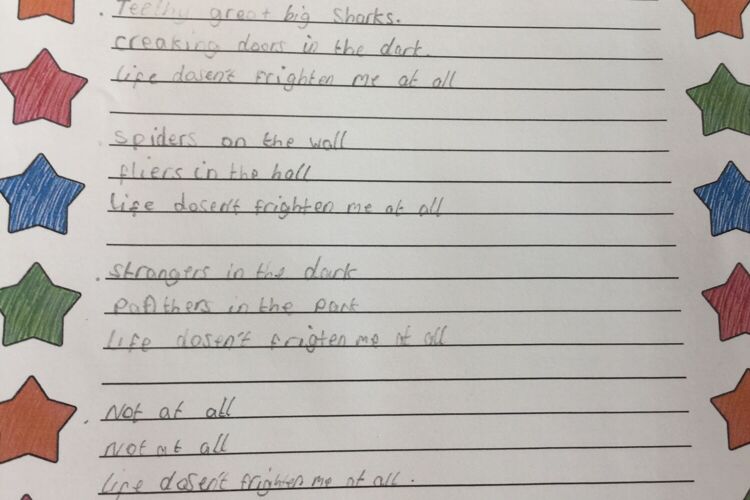 Teethy great big Sharks.
creaking doors in the dark.
life dosen't frighten me at all
Spiders on the wall
fliers in the hall
life dosen't frighten me at all
strangers in the dark
in the park
life dosen't frigten me at all
Not at all
Not at all
life dosen't frighten me at all.